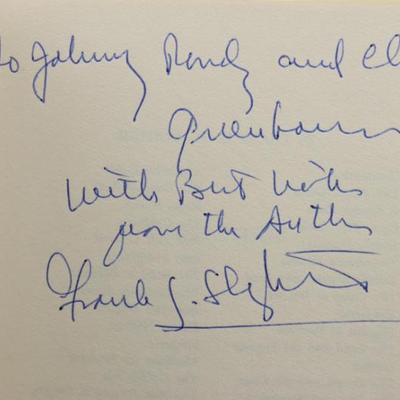 to Johnny Randy and
Greenbaum
With Best Wishes
from the Author
Frank G. Slaughter